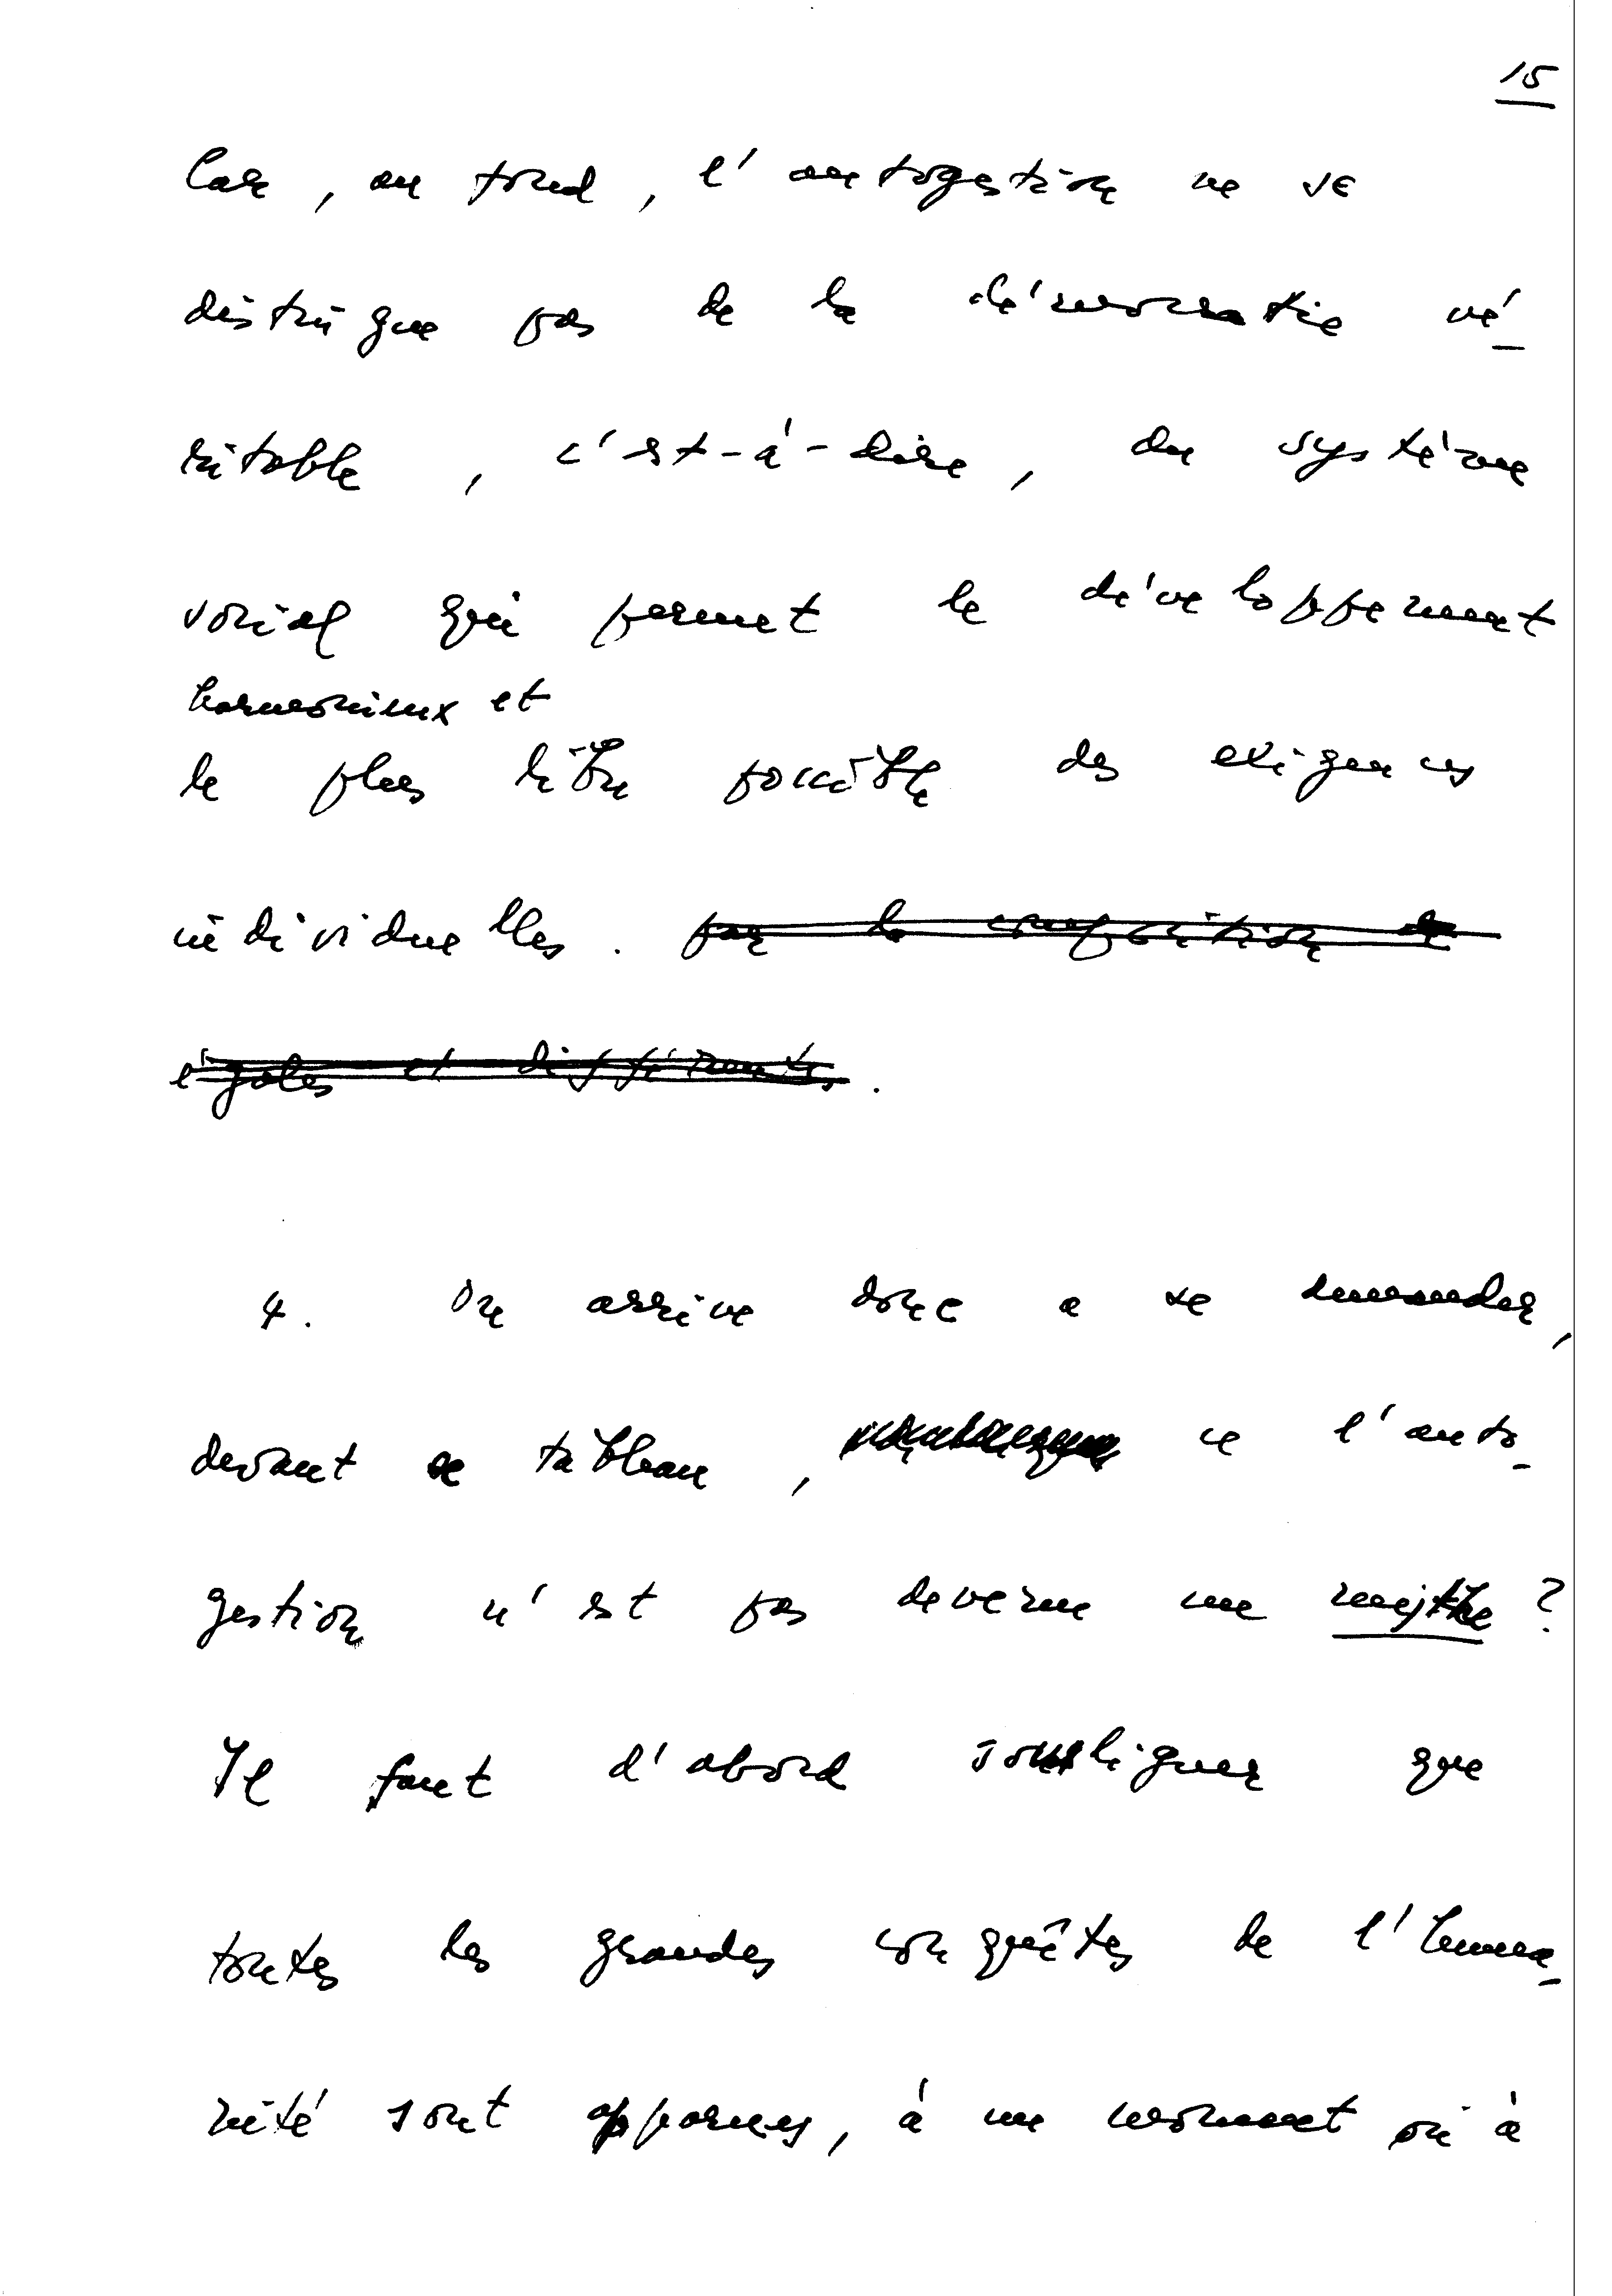 15
Car, au fond, l'autogestion ne se
distingue pas de la démocratie vé-
ritable, c'est-à-dire, du système
social qui permet le développement
harmonieux et
le plus libre possible des exigences
individuelles. par la composition de
égales et différentes.
4. On arrive donc a se demander,
devant ce tableau, si l'auto-
gestion n'est pas devenu un mythe ?
Il faut d'abord souligner que
toutes les grandes conquêtes de l'huma-
nité sont apparues, à un moment où à